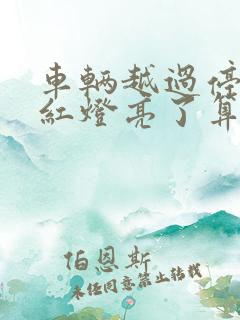 車輛越過停
紅燈亮了算
伯恩斯
未经同意禁止转载